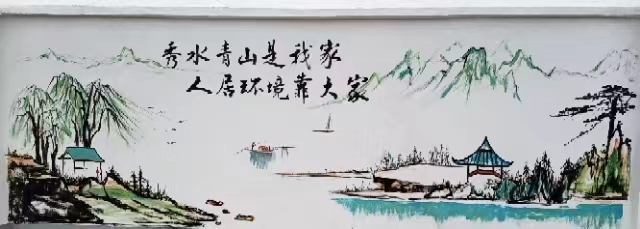 秀水青山是我家
人居环境靠大家